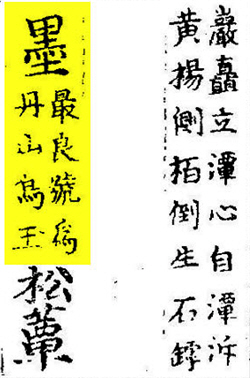 巖矗立潭心自潭泝
黃楊側栢倒生石罅
墨
最良號為
丹山烏玉
松蕈